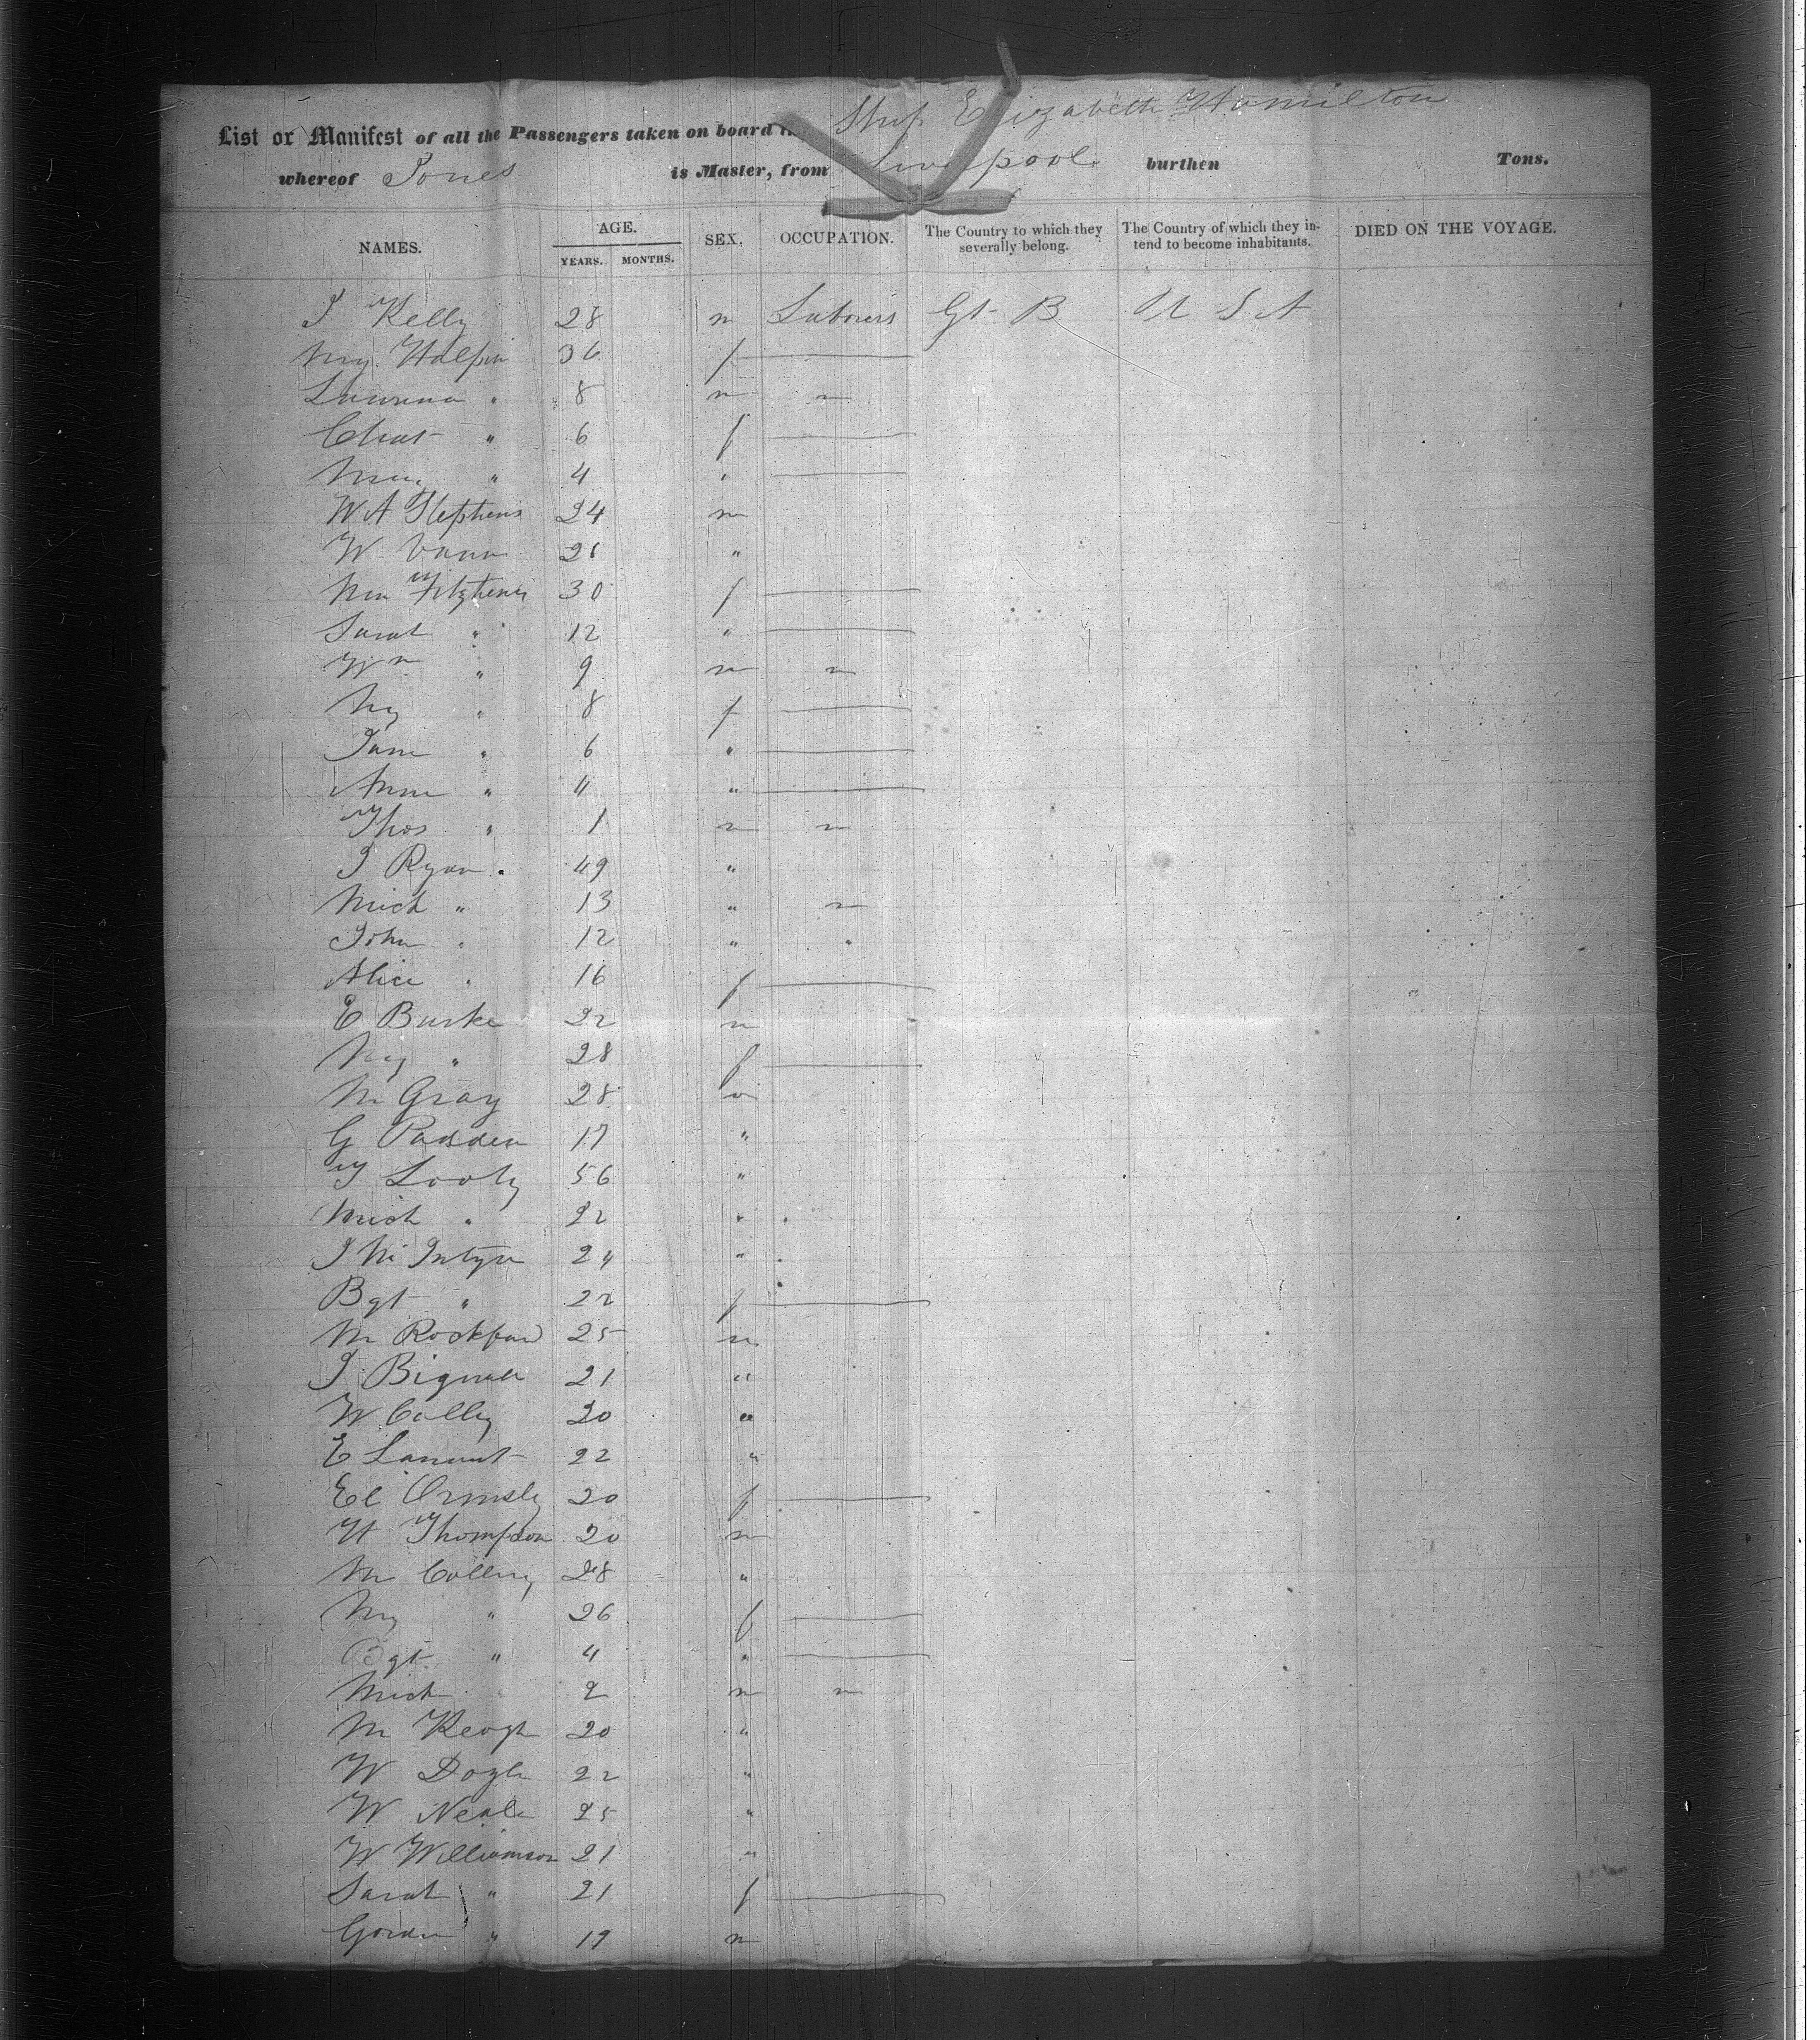 Ship Elizabeth Hamilton
List or Manifest of all the Passengers taken on board
whereof Jones is Master, from Liverpool burthen Tons.
NAMES. AGE. YEARS. MONTHS. SEX. OCCUPATION. The Country to which they severally belong. The Country of which they intend to become inhabitants. DIED ON THE VOYAGE.
J Kelly 28 m Labourers Gt B U S A
My Halpin 36 f
" 8 m "
" 6 f
" 4 "
W A Stephens 24 m
W Vann "
30 f
Sarah " 12 "
Wm " 9 m "
My " 8 f
Jane " 6 "
Anne " 4 "
Thos " 1 m "
J Ryan 49 "
Mich " 13 " "
John " 12 " "
Alice " 16 f
E Burke 22 m
My " 28 f
M Gray 28 m
G Padden 17 "
T Looby 56 "
Mich " 22 "
J McIntyre 24 "
Bgt " 22 f
M Rockford 25 m
J Bignell 21 "
W Colley 20 "
E Lamont 22 "
El Ormsly 20 f
H Thompson 20 m
M 28 "
My " 26 f
Bgt " 4 "
Mich " 2 m "
M Keogh 20 "
W Doyle 22 "
W Neale 25 "
W Williamson 21 "
Sarah " 21 f
Gordon " 19 m